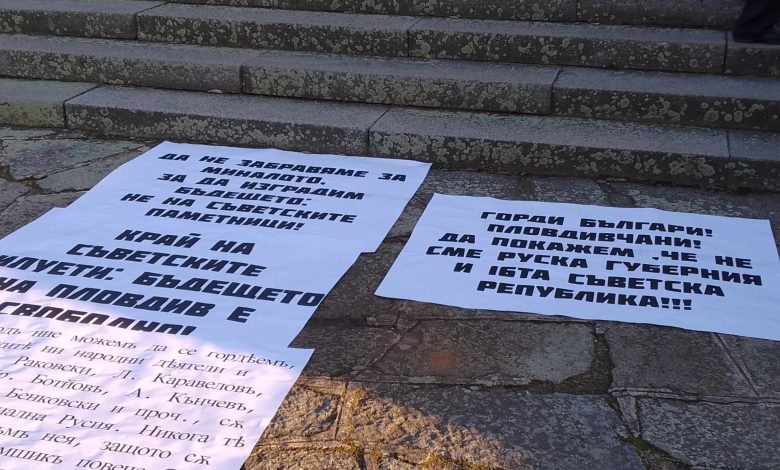 ДА НЕ ЗАБРАВЯМЕ ЗА
МИНАЛОТО,
ЗА ДА ИЗГРАДИМ
БЪДЕЩЕТО:
НЕ НА СЪВЕТСКИТЕ
ПАМЕТНИЦИ!
КРАЙ НА
СЪВЕТСКИТЕ
ИЛУЕТИ: БЪДЕЩЕТО
НА ПЛОВДИВ Е
СВОБОДНО!
ние можемъ да се гордѣемъ,
ни народни дѣятели и
Раковски, Л. Каравеловъ,
Ботйовъ, А. Кънчевъ,
Бенковски и проч., сѫ
Русия. Никога тѣ
нея, защото сѫ
ГОРДИ БЪЛГАРИ!
ПЛОВДИВЧАНИ!
ДА ПОКАЖЕМ ,ЧЕ НЕ
СМЕ РУСКА ГУБЕРНИЯ
И 16ТА СЪВЕТСКА
РЕПУБЛИКА!!!